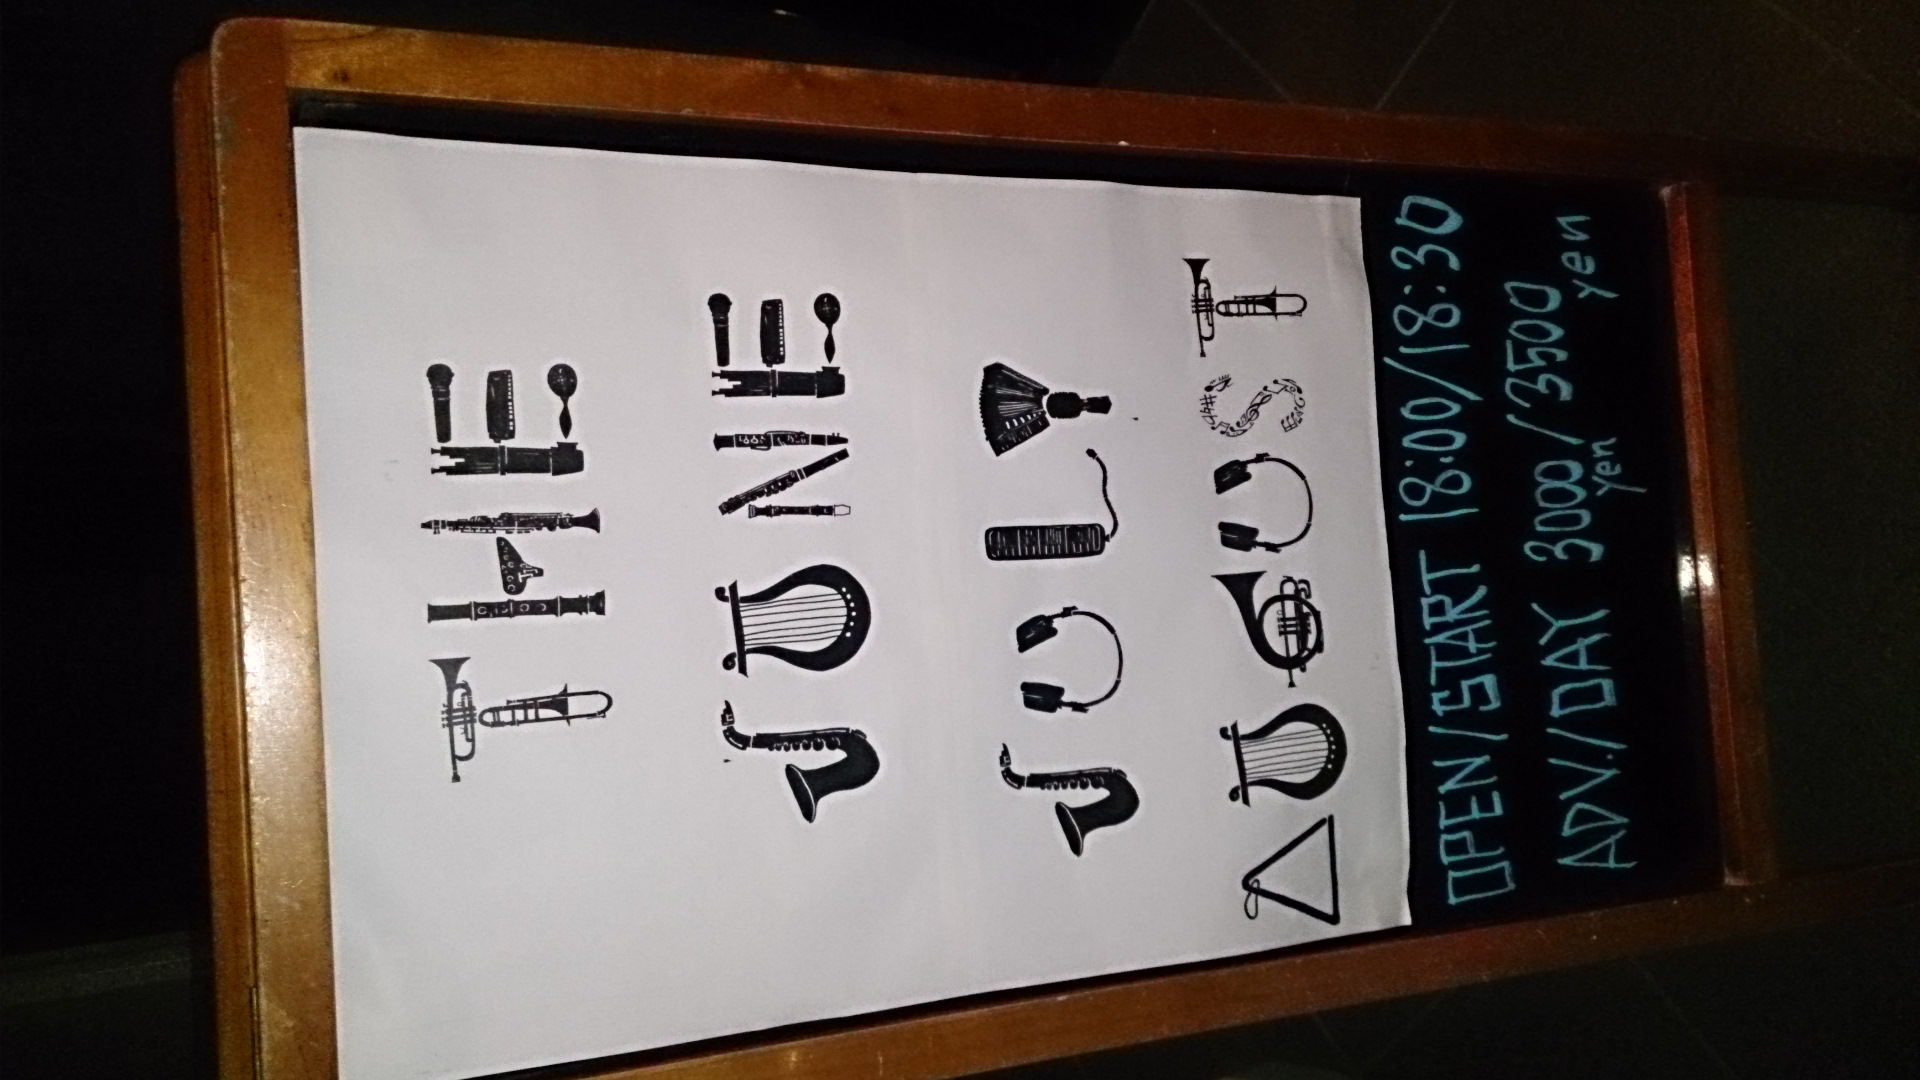 THE
JUNE
JULY
AUGUST
OPEN/START 18:00/18:30
ADV./DAY 3000/3500
Yen yen